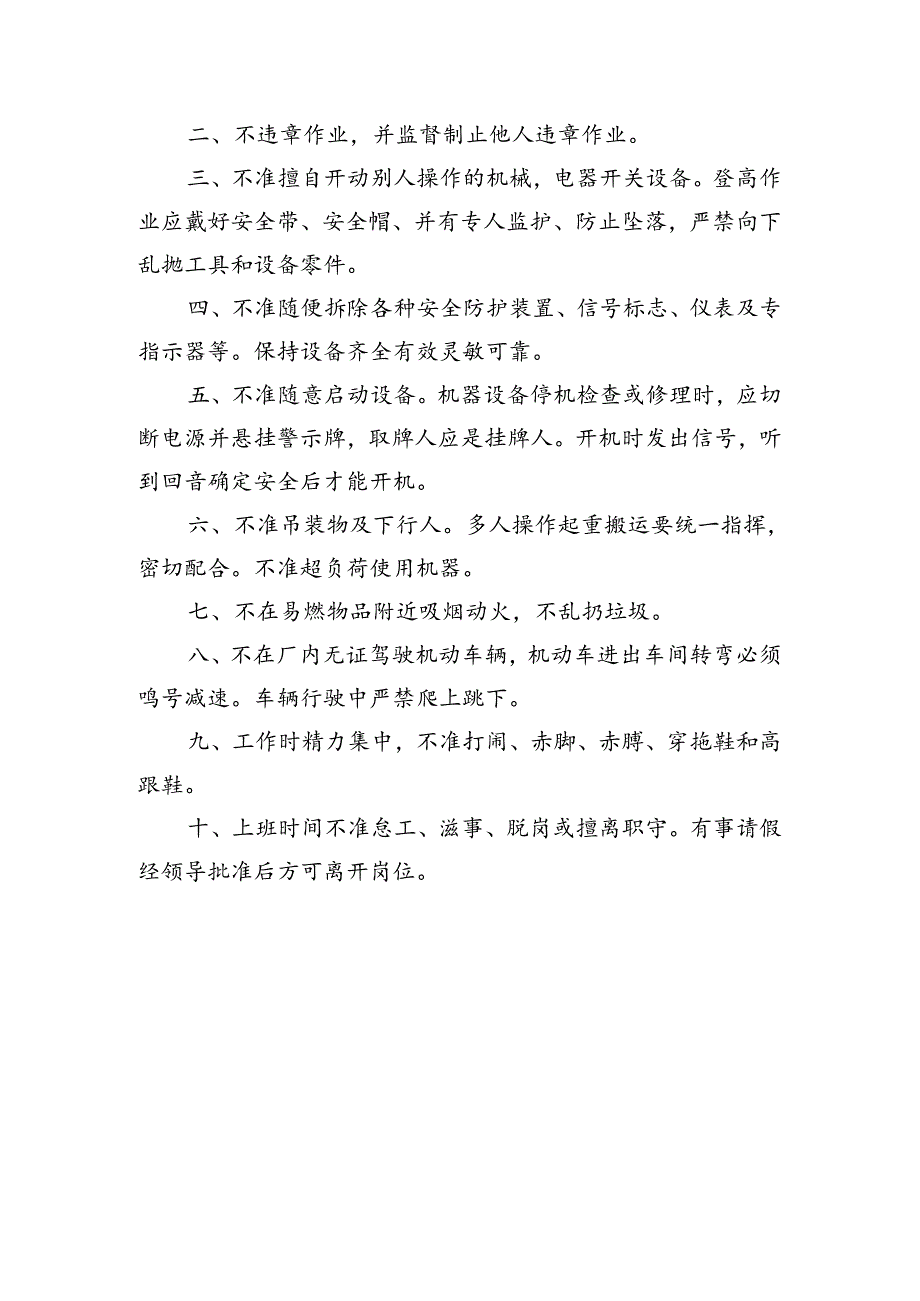 二、不违章作业，并监督制止他人违章作业。
三、不准擅自开动别人操作的机械，电器开关设备。登高作
业应戴好安全带、安全帽、并有专人监护、防止坠落，严禁向下
乱抛工具和设备零件。
四、不准随便拆除各种安全防护装置、信号标志、仪表及专
指示器等。保持设备齐全有效灵敏可靠。
五、不准随意启动设备。机器设备停机检查或修理时，应切
断电源并悬挂警示牌，取牌人应是挂牌人。开机时发出信号，听
到回音确定安全后才能开机。
六、不准吊装物及下行人。多人操作起重搬运要统一指挥，
密切配合。不准超负荷使用机器。
七、不在易燃物品附近吸烟动火，不乱扔垃圾。
八、不在厂内无证驾驶机动车辆，机动车进出车间转弯必须
鸣号减速。车辆行驶中严禁爬上跳下。
九、工作时精力集中，不准打闹、赤脚、赤膊、穿拖鞋和高
跟鞋。
十、上班时间不准怠工、滋事、脱岗或擅离职守。有事请假
经领导批准后方可离开岗位。